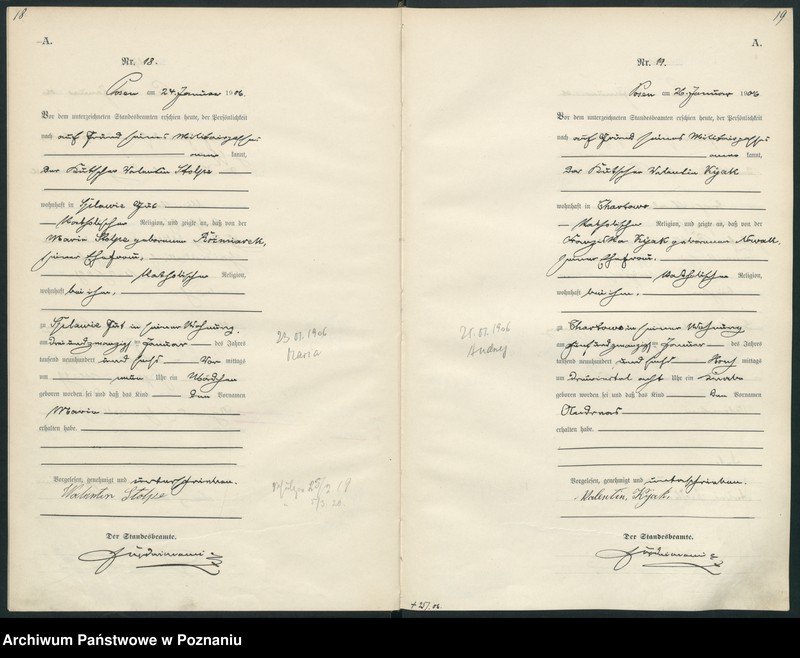 18
A.
Nr. 18.
Posen am 24. Januar 1906.
Vor dem unterzeichneten Standesbeamten erschien heute, der Persönlichkeit
nach auf Grund seines Militairpasses
kannt,
der Kutscher Valentin Stolpe
wohnhaft in Gut
katholischer Religion, und zeigte an, daß von der
Maria Stolpe geborenen
seiner Ehefrau,
katholischer Religion,
wohnhaft bei ihm,
zu Gut in seiner Wohnung,
am dreiundzwanzigsten Januar des Jahres
tausend neunhundert und sechs Vor mittags
um neun Uhr ein Mädchen
geboren worden sei und daß das Kind den Vornamen
Maria
erhalten habe.
Vorgelesen, genehmigt und unterschrieben.
Walentin Stolpe
Der Standesbeamte.
23.01.1906
Maria
19
A.
Nr. 19.
Posen am 26. Januar 1906
Vor dem unterzeichneten Standesbeamten erschien heute, der Persönlichkeit
nach auf Grund seines Militairpasses
kannt,
der Kutscher Valentin Kijak
wohnhaft in Chartowo
katholischer Religion, und zeigte an, daß von der
Franziska Kijak geborenen Nowak,
seiner Ehefrau,
katholischer Religion,
wohnhaft bei ihm,
zu Chartowo in seiner Wohnung
am fünfundzwanzigsten Januar des Jahres
tausend neunhundert und sechs Nach mittags
um dreiviertel acht Uhr ein Knabe
geboren worden sei und daß das Kind den Vornamen
Andreas
erhalten habe.
Vorgelesen, genehmigt und unterschrieben.
Walentin Kijak
Der Standesbeamte.
25.01.1906
Andrzej
Archiwum Państwowe w Poznaniu